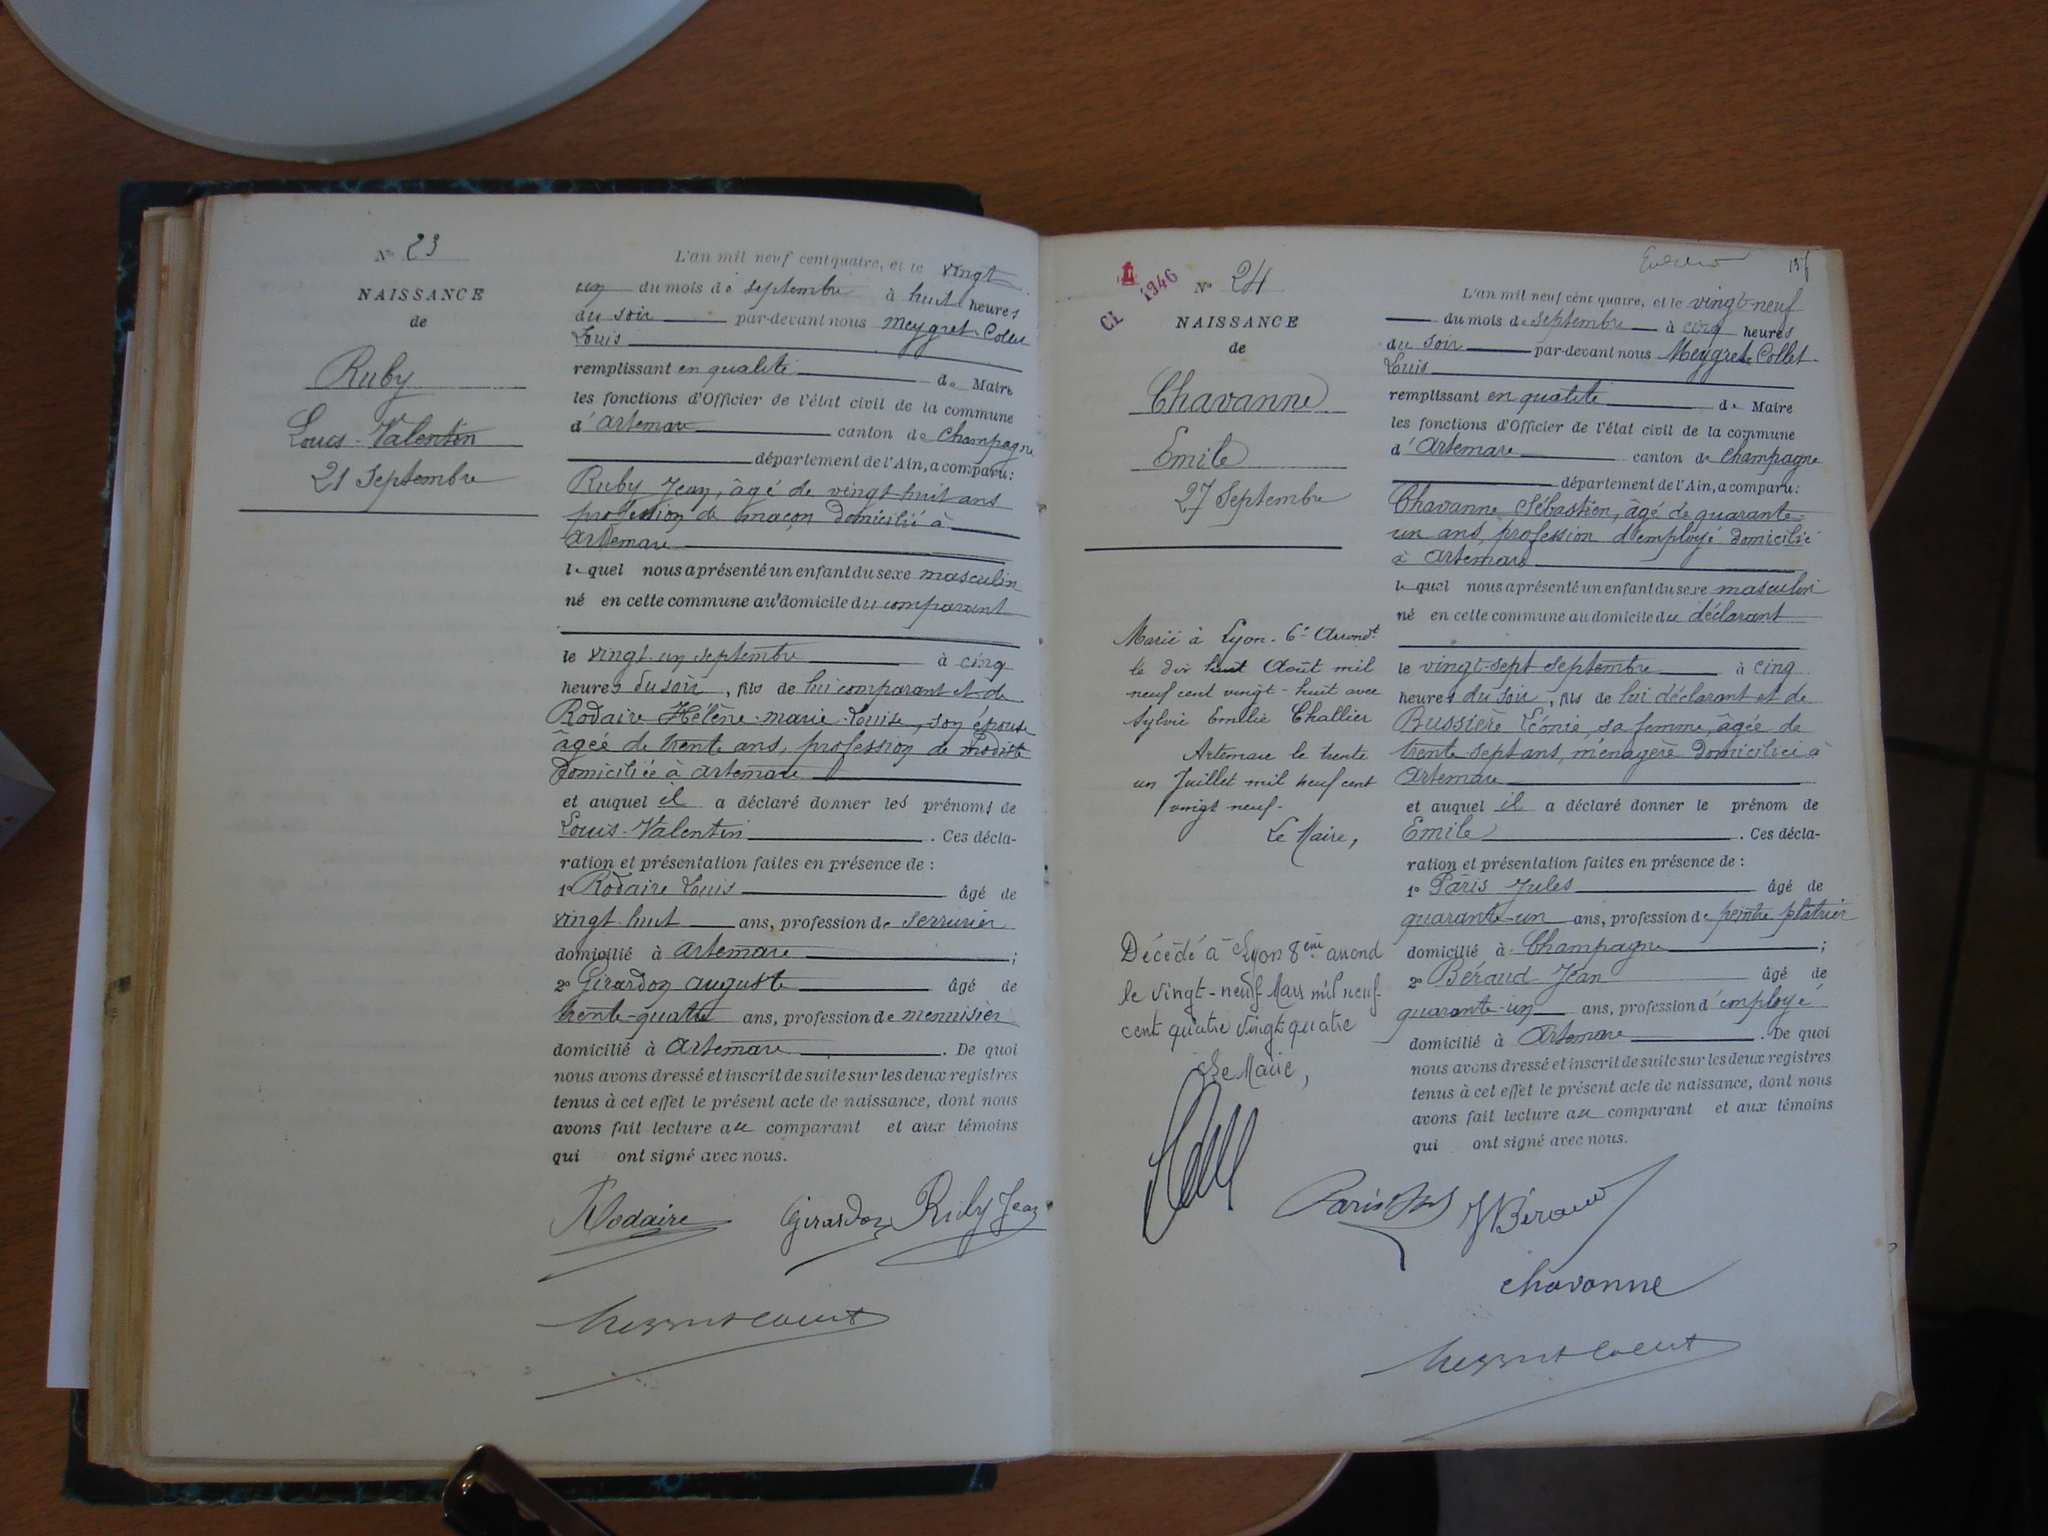 N° 23
NAISSANCE
de
Ruby
Louis-Valentin
21 Septembre
L'an mil neuf cent quatre, et le vingt
un du mois de septembre à huit heures
du soir par-devant nous Meygret-Collet
Louis
remplissant en qualité de Maire
les fonctions d'Officier de l'état civil de la commune
d'Artemare canton de Champagne
département de l'Ain, a comparu:
Ruby Jean, âgé de vingt huit ans
profession de maçon domicilié à
Artemare
lequel nous a présenté un enfant du sexe masculin
né en cette commune au domicile du comparant
le vingt-un septembre à cinq
heures du soir, fils de lui comparant et de
Rodaire Hélène-marie-Louise, son épouse
âgée de trente ans, profession de modiste
domiciliée à Artemare
et auquel il a déclaré donner les prénoms de
Louis-Valentin. Ces décla-
ration et présentation faites en présence de:
1° Rodaire Louis âgé de
vingt huit ans, profession de serrurier
domicilié à Artemare;
2° Girardoz auguste âgé de
trente-quatre ans, profession de menuisier
domicilié à Artemare. De quoi
nous avons dressé et inscrit de suite sur les deux registres
tenus à cet effet le présent acte de naissance, dont nous
avons fait lecture au comparant et aux témoins
qui ont signé avec nous.
Rodaire Girardoz Ruby Jean
Meygret Collet
CL 1946
N° 24
NAISSANCE
de
Chavanne
Emile
27 Septembre
Marié à Lyon - 6e Arrondt
le dix huit Août mil
neuf cent vingt-huit avec
Sylvie Emilie Challier
Artemare le trente
un Juillet mil neuf cent
vingt neuf.
Le Maire,
Décédé à Lyon 8ème arrond
le vingt-neuf Mars mil neuf
cent quatre vingt quatre
Le Maire,
L'an mil neuf cent quatre, et le vingt-neuf
du mois de septembre à cinq heures
du soir par-devant nous Meygret Collet
Louis
remplissant en qualité de Maire
les fonctions d'Officier de l'état civil de la commune
d'Artemare canton de Champagne
département de l'Ain, a comparu:
Chavanne Sébastien, âgé de quarante
un ans, profession d'employé domicilié
à Artemare
lequel nous a présenté un enfant du sexe masculin
né en cette commune au domicile du déclarant
le vingt-sept septembre à cinq
heures du soir, fils de lui déclarant et de
Bussière Léonie, sa femme, âgée de
trente-sept ans, ménagère domiciliée à
Artemare
et auquel il a déclaré donner le prénom de
Emile. Ces décla-
ration et présentation faites en présence de:
1° Paris Jules âgé de
quarante-un ans, profession de peintre plâtrier
domicilié à Champagne;
2° Béraud Jean âgé de
quarante-un ans, profession d'employé
domicilié à Artemare. De quoi
nous avons dressé et inscrit de suite sur les deux registres
tenus à cet effet le présent acte de naissance, dont nous
avons fait lecture au comparant et aux témoins
qui ont signé avec nous.
Paris Jules J Béraud
Chavanne
Meygret Collet